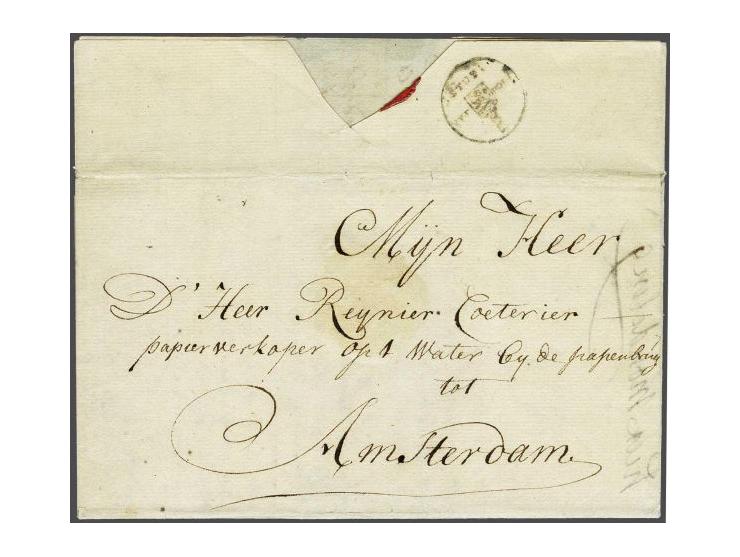 Mijn Heer
D' Heer Reijnier Coeterier
papierverkoper op t Water by de papenbrug
tot
Amsterdam.